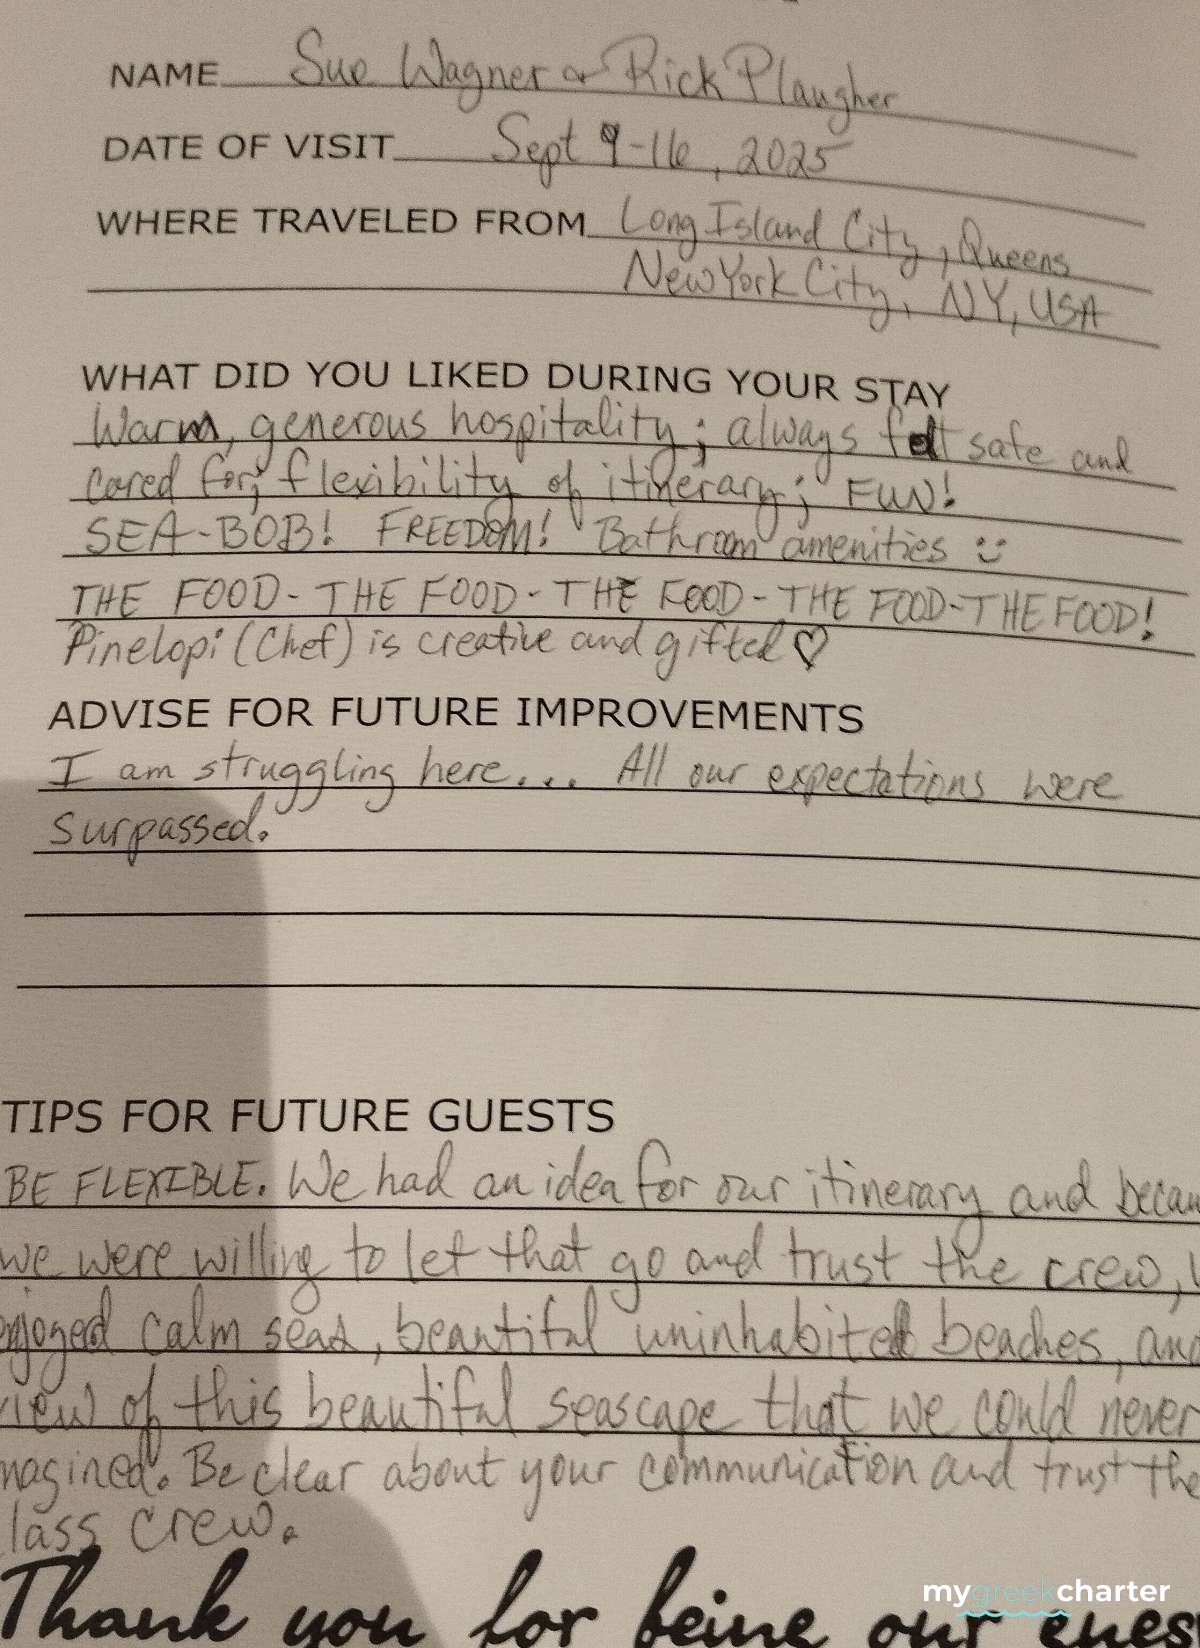 NAME Sue Wagner & Rick Plaugher
DATE OF VISIT Sept 9-16, 2025
WHERE TRAVELED FROM Long Island City, Queens
New York City, NY, USA
WHAT DID YOU LIKED DURING YOUR STAY
Warm, generous hospitality; always felt safe and
cared for; flexibility of itinerary; FUN!
SEA-BOB! FREEDOM! Bathroom amenities :)
THE FOOD - THE FOOD - THE FOOD - THE FOOD - THE FOOD!
Pinelopi (Chef) is creative and gifted ♡
ADVISE FOR FUTURE IMPROVEMENTS
I am struggling here... All our expectations were
surpassed.
TIPS FOR FUTURE GUESTS
BE FLEXIBLE. We had an idea for our itinerary and becau
we were willing to let that go and trust the crew,
enjoyed calm seas, beautiful uninhabited beaches, and
view of this beautiful seascape that we could never
magined. Be clear about your communication and trust the
lass crew.
Thank you for being our gues
mygreekcharter